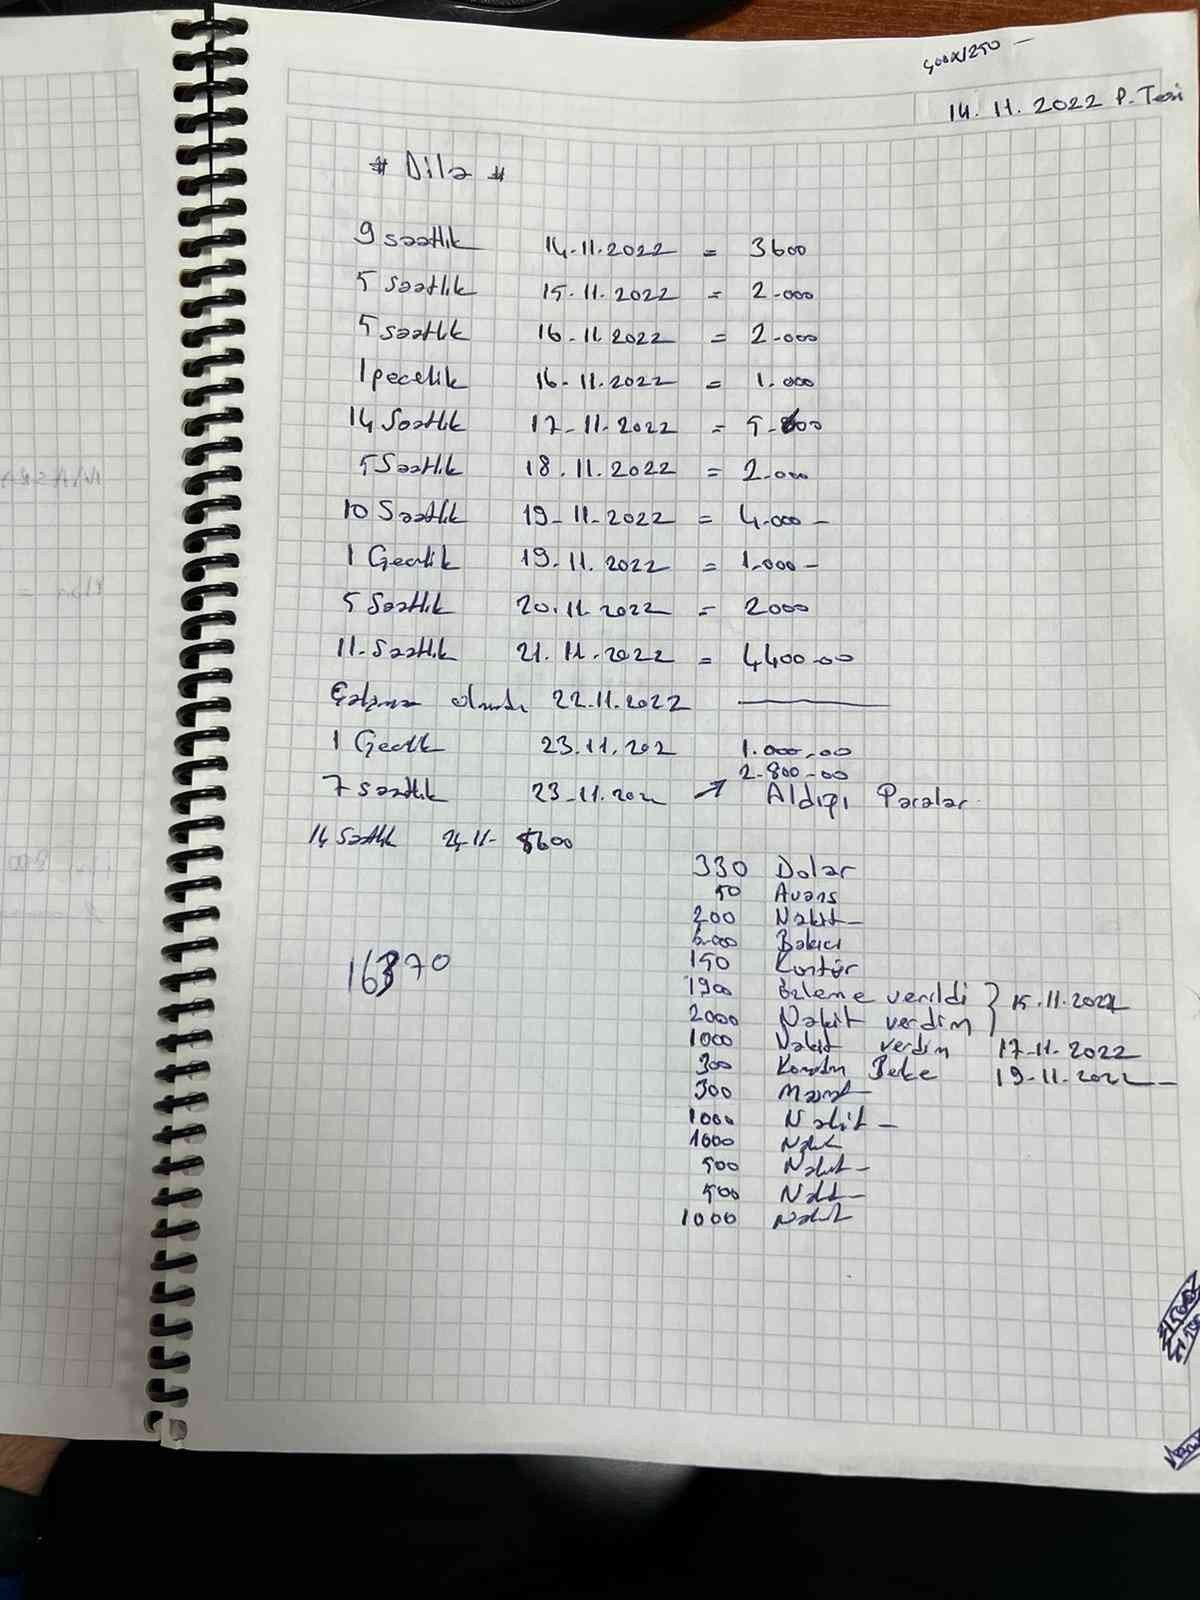 400x1250 -
14.11.2022 P.Tesi
# Dila #
9 saatlik 14-11-2022 = 3600
5 saatlik 15.11.2022 = 2.000
5 saatlik 16-11.2022 = 2.000
1 pecelik 16-11.2022 = 1.000
14 Saatlik 17-11-2022 = 5.600
5 Saatlik 18.11.2022 = 2.000
10 Saatlik 19-11-2022 = 4.000-
1 Gecelik 19.11.2022 = 1.000-
5 Saatlik 20.11.2022 = 2000
11-Saatlik 21.11.2022 = 4400.00
22.11.2022
1 Gecelik 23.11.202 1.000,00
2.800-00
7 saatlik 23-11.202 → Aldıgı Paralar
14 Saatlik 24-11- 5600
330 Dolar
50 Avans
200 Nakit-
6.000 Bakıcı
150 Kontör
1900 ödeme verildi
15.11.2022
2000 Nakit verdim
1000 Nakit verdim 17-11-2022
300 19-11-2022-
300
1000 Nakit-
1000 Nakit
500 Nakit-
500 Nakit-
1000 Nakit
16370